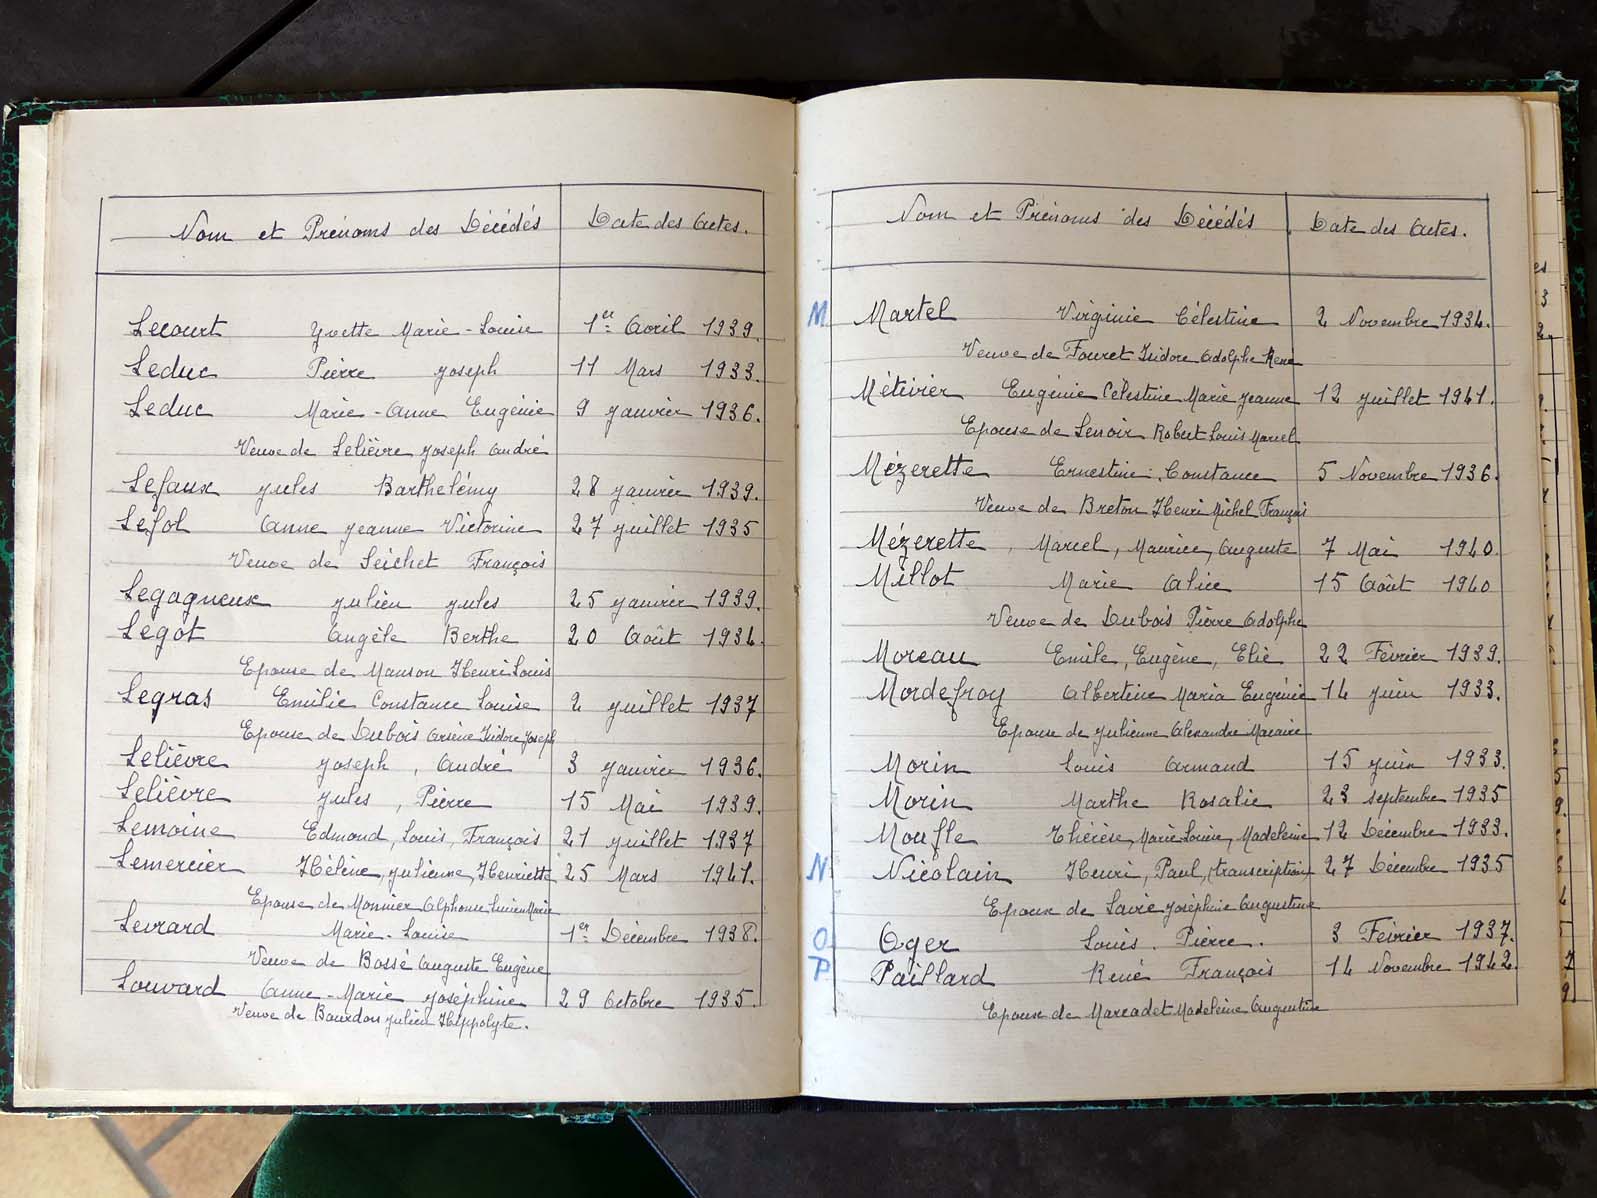 Nom et Prénoms des Décédés Date des Actes.
Lecourt Yvette Marie-Louise 1er Avril 1939.
Leduc Pierre Joseph 11 Mars 1933.
Leduc Marie-Anne Eugénie 9 Janvier 1936.
Veuve de Lelièvre Joseph André
Lefaux Jules Barthelémy 28 Janvier 1939.
Lefol Anne Jeanne Victorine 27 Juillet 1935
Veuve de Leichet François
Legagneux Julien Jules 25 Janvier 1939.
Legot Angèle Berthe 20 Août 1934.
Epouse de Manson Henri Louis
Legras Emilie Constance Louise 2 Juillet 1937
Epouse de Dubois Arsène Isidore Joseph
Lelièvre Joseph, André 3 Janvier 1936.
Lelièvre Jules, Pierre 15 Mai 1939.
Lemoine Edmond, Louis, François 21 Juillet 1937
Lemercier Hélène, Julienne, Henriette 25 Mars 1941.
Epouse de Monnier Alphonse Lucien Marie
Levrard Marie-Louise 1er Décembre 1938.
Veuve de Bossé Auguste Eugène
Louvard Anne-Marie Joséphine 29 Octobre 1935.
Veuve de Bourdon Julien Hippolyte.
Nom et Prénoms des Décédés Date des Actes.
M Martel Virginie Célestine 2 Novembre 1934.
Veuve de Fouret Isidore Adolphe René
Métivier Eugénie Célestine Marie Jeanne 12 Juillet 1941.
Epouse de Lenoir Robert Louis Marcel
Mézerette Ernestine Constance 5 Novembre 1936.
Veuve de Breton Henri Michel François
Mézerette, Marcel, Maurice, Auguste 7 Mai 1940.
Millot Marie Alice 15 Août 1940
Veuve de Dubois Pierre Adolphe
Moreau Emile, Eugène, Elie 22 Février 1939.
Mordefroy Albertine Maria Eugénie 14 Juin 1933.
Epouse de Julienne Alexandre Macaire
Morin Louis Armand 15 Juin 1933.
Morin Marthe Rosalie 23 septembre 1935
Moufle Thérèse, Marie Louise, Madeleine 12 Décembre 1933.
N Nicolain Henri, Paul, (transcription) 27 Décembre 1935
Epoux de Lavre Joséphine Augustine
O Oger Louis. Pierre. 3 Février 1937.
P Paillard René François 14 Novembre 1942.
Epoux de Marcadet Madeleine Augustine